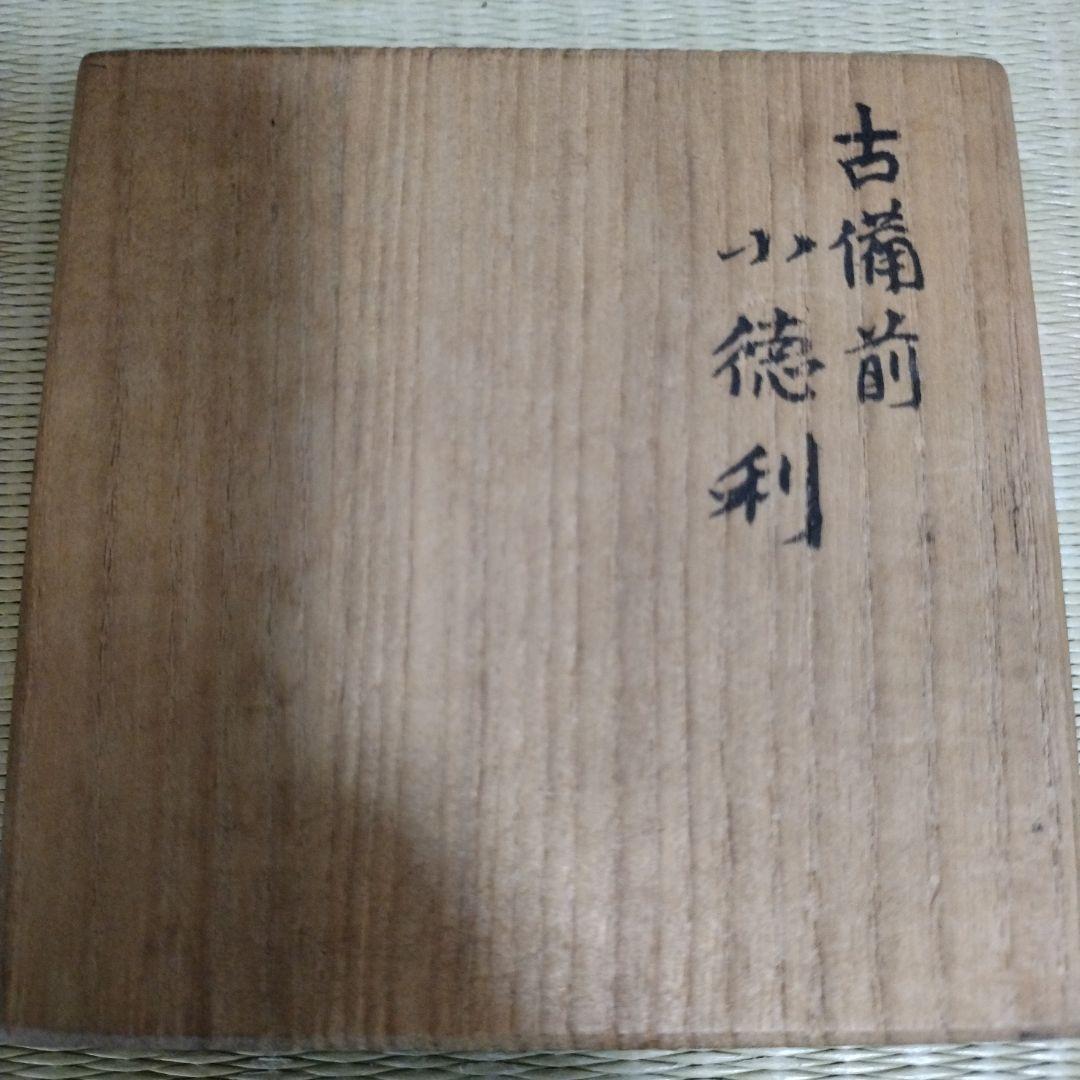 古備前
小徳利